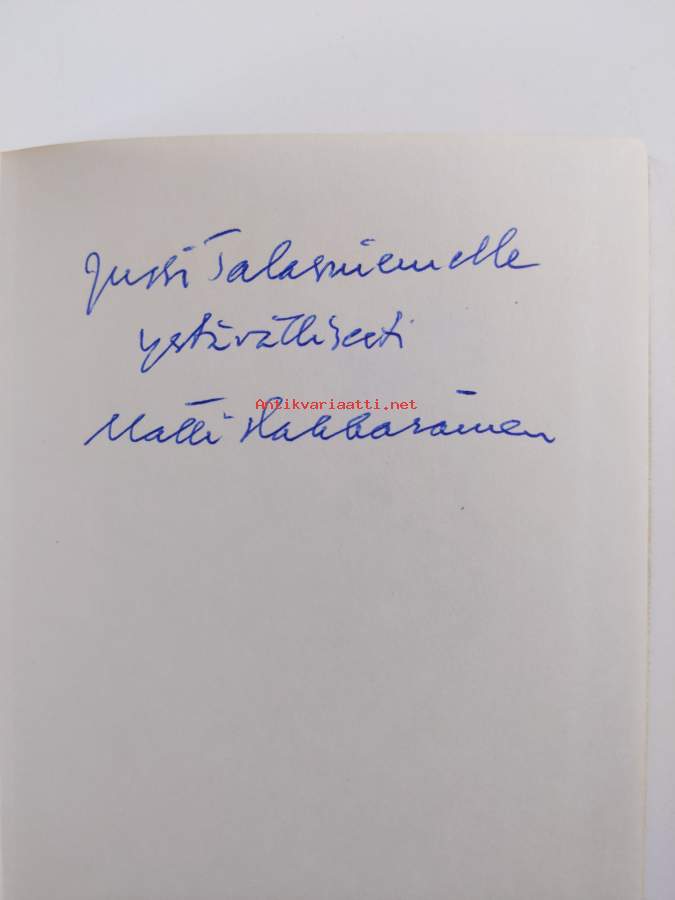 Jussi Talasniemelle
ystävällisesti
Antikvariaatti.net
Matti Hakkarainen